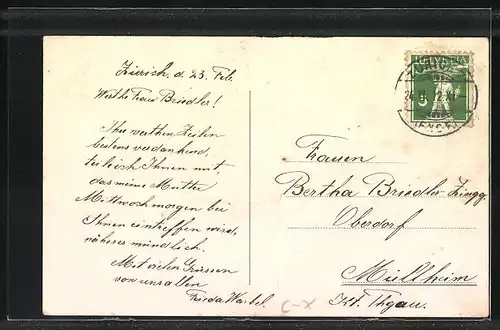 Zürich, d. 23. Feb.
Werthe Frau Briedler!
Ihre werthen Zeilen
bestens verdankend,
teile ich Ihnen mit,
das meine Mutter
Mittwochmorgen bei
Ihnen eintreffen wird,
näheres mündlich.
Mit vielen Grüssen
von uns allen
Frieda
HELVETIA
5
ZÜRICH
24.II.12.XI
(ENGE)
Frauen
Bertha Briedler-Zingg
Oberdorf
Müllheim
Kt. Thgau.
C-X